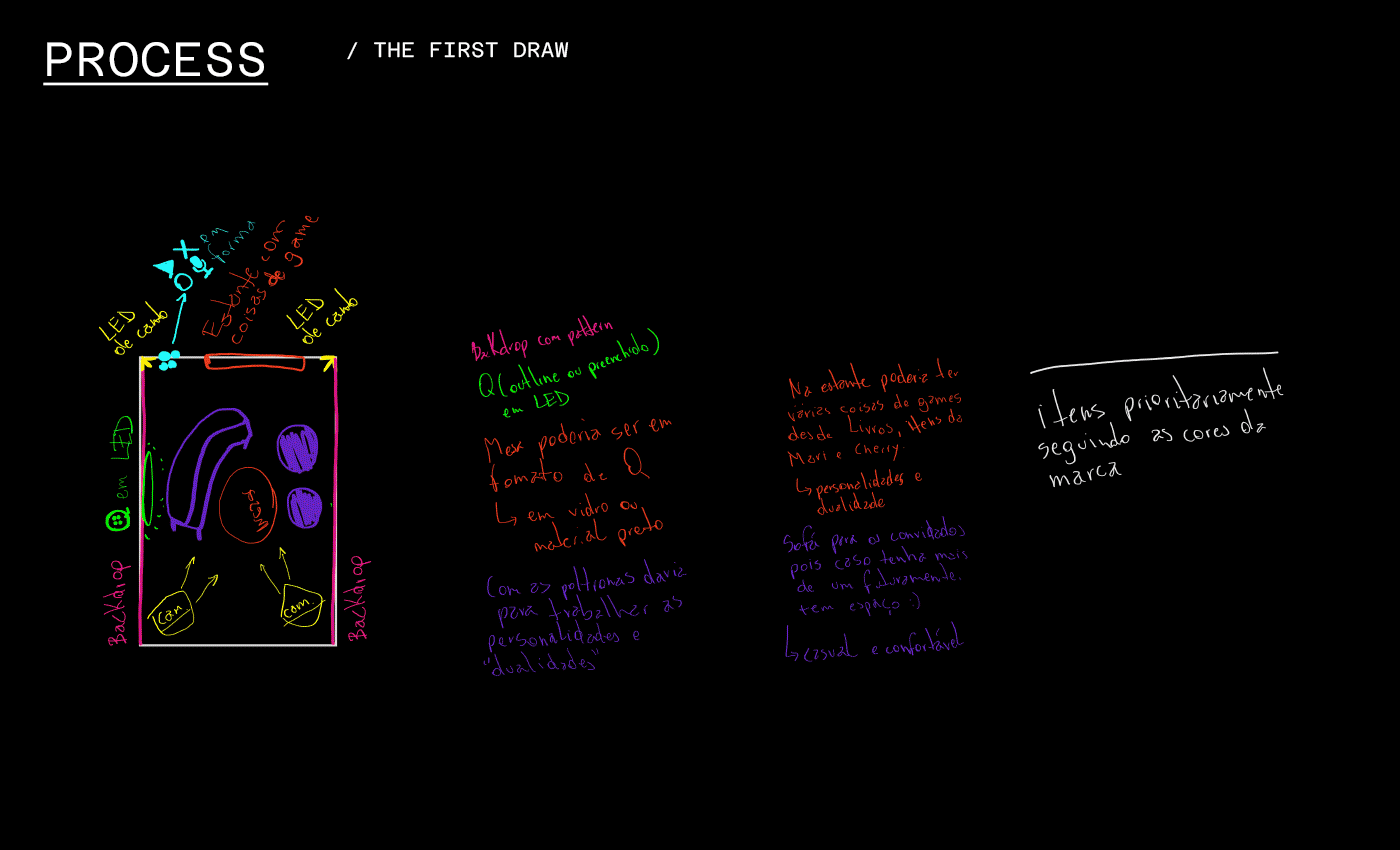 PROCESS
/ THE FIRST DRAW
em
forma
Estante com
coisas de game
LED
de canto
LED
de canto
em LED
Mesa
Backdrop
Backdrop
Cam.
Cam.
Backdrop com pattern
Q (outline ou preenchido)
em LED
Mesa poderia ser em
fomato de Q
↳ em vidro ou
material preto
Com as poltronas daria
para trabalhar as
personalidades e
"dualidades"
Na estante poderia ter
várias coisas de games
desde Livros, itens da
Mari e Cherry.
↳ personalidades e
dualidade
Sofá para os convidados
pois caso tenha mais
de um futuramente.
tem espaço :)
↳ casual e confortável
itens prioritariamente
seguindo as cores da
marca